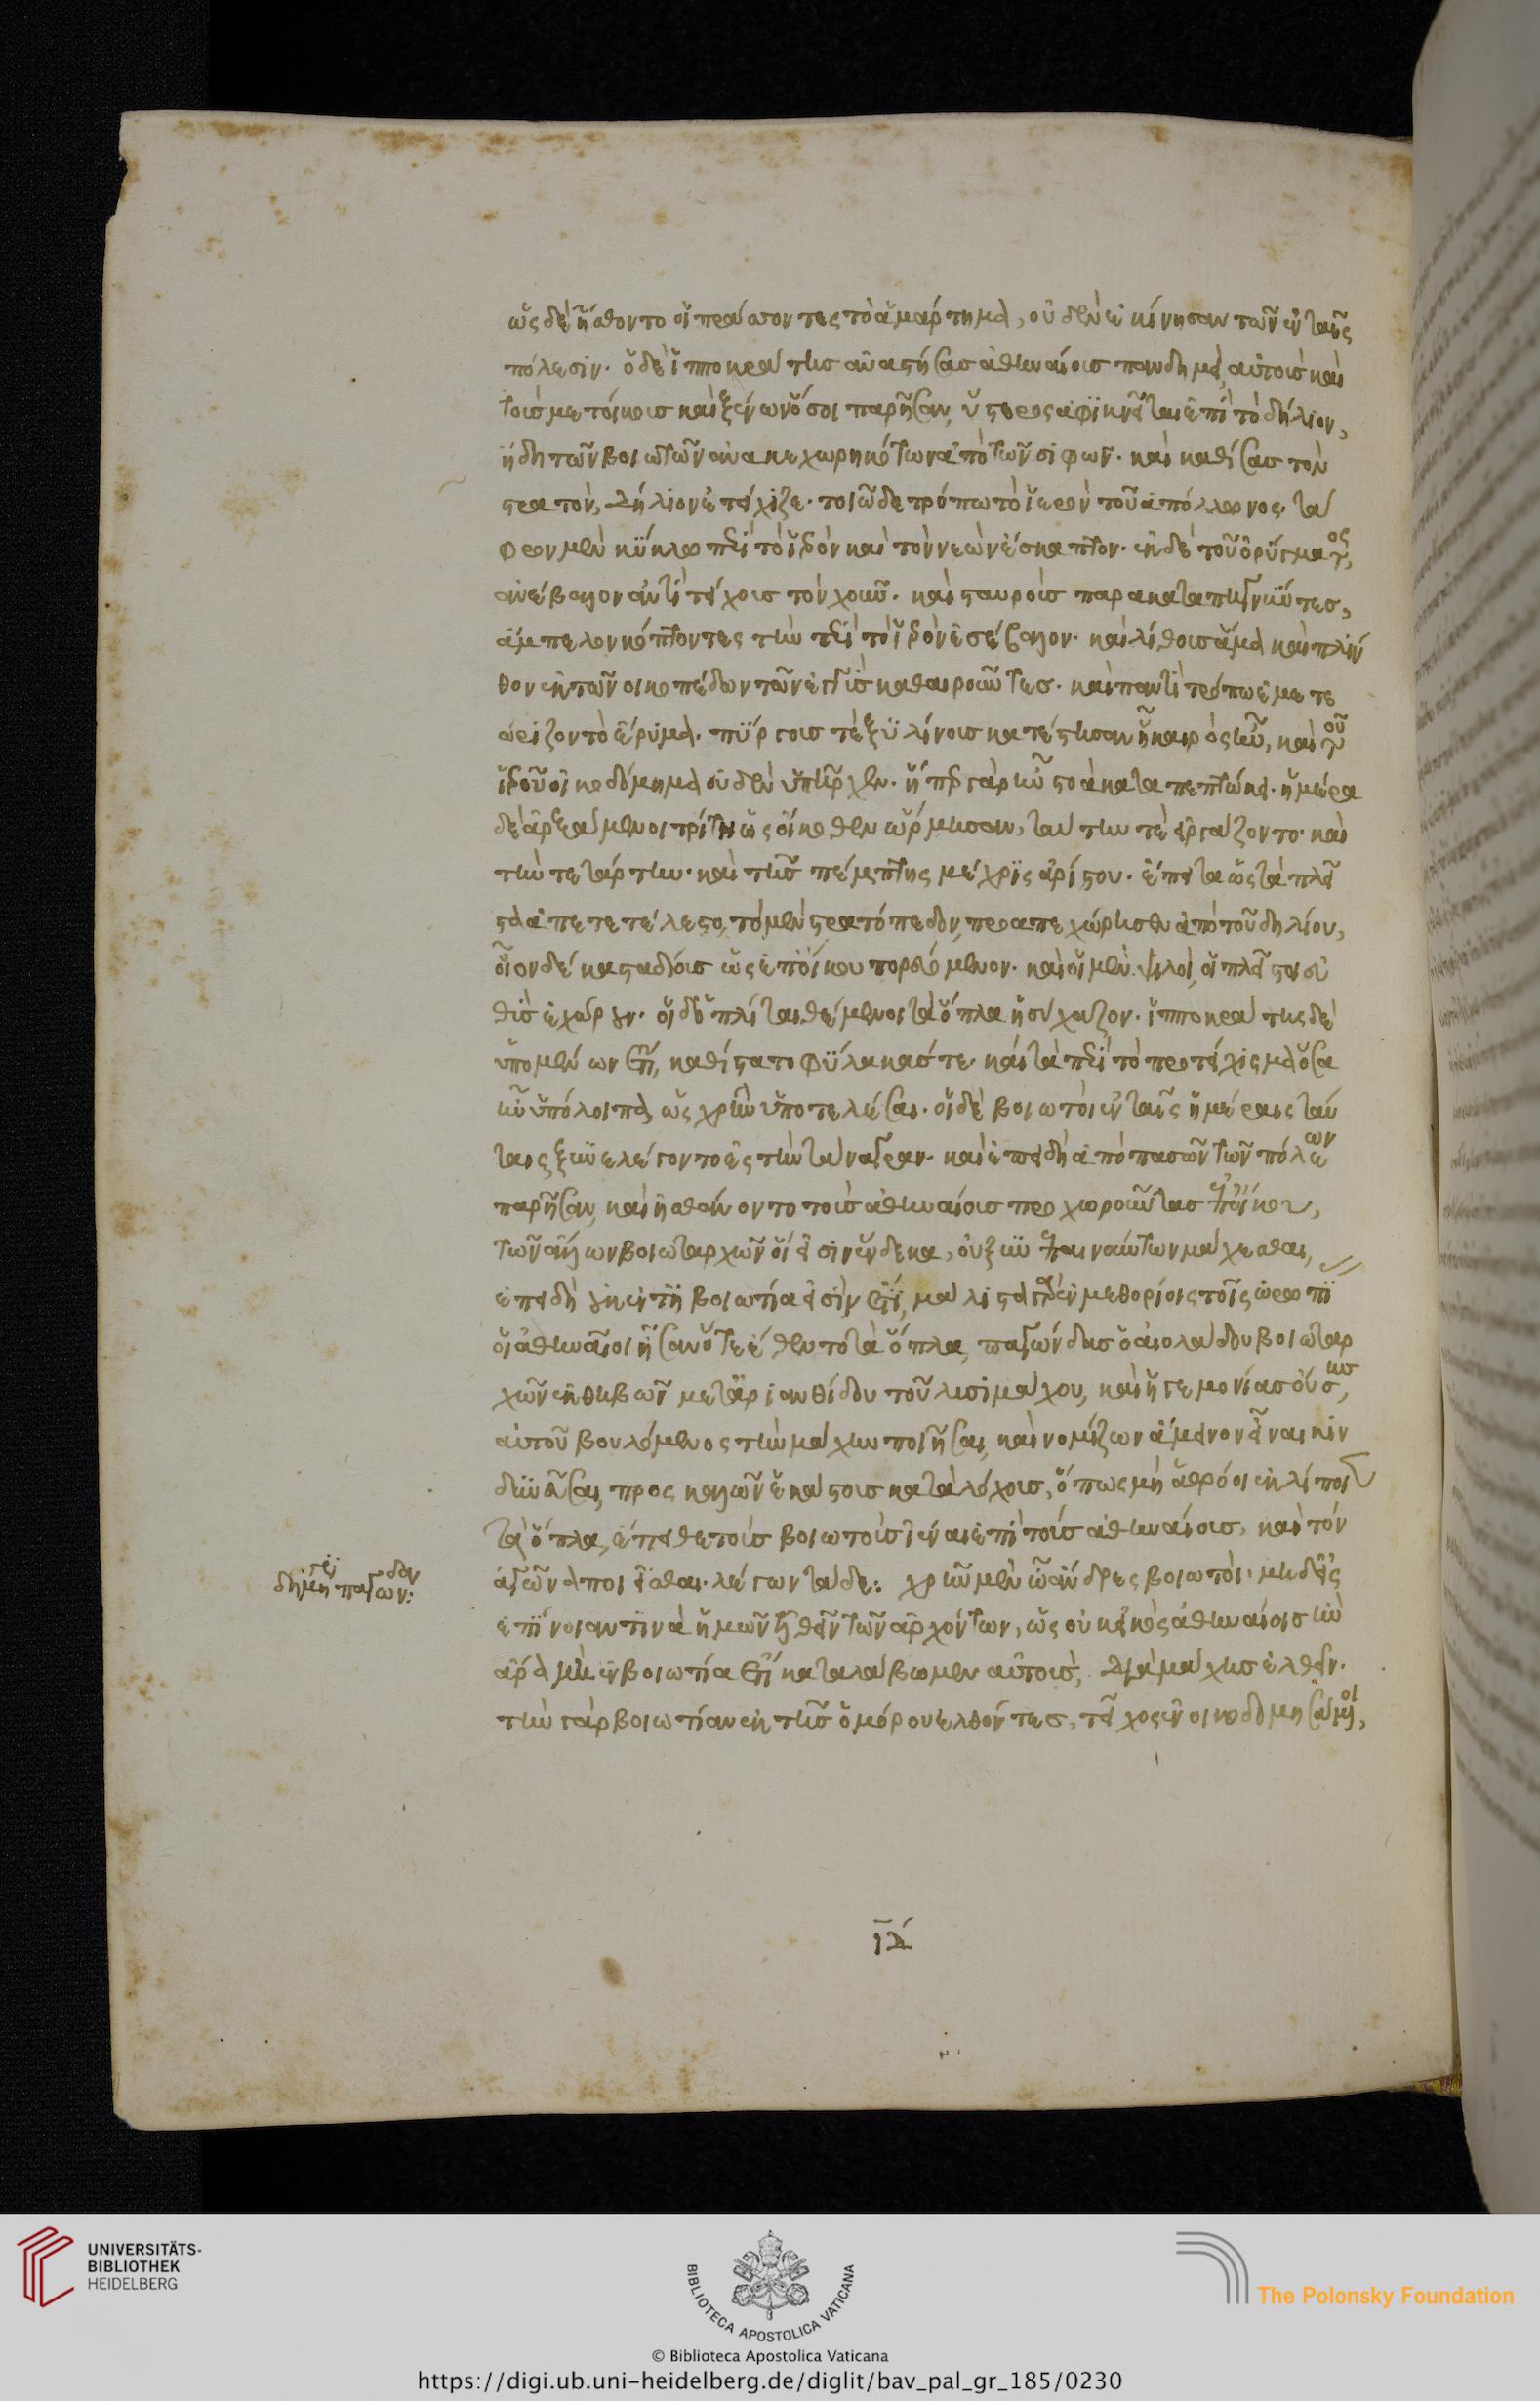 ὡς δὲ ἤσθοντο οἱ πράσσοντες τὸ ἁμάρτημα, οὐδὲν ἐκίνησαν τῶν ἐν ταῖς
πόλεσιν. ὁ δὲ ἱπποκράτης ἀναστήσας ἀθηναίους πανδημεὶ, αὐτοὺς καὶ
τοὺς μετοίκους καὶ ξένων ὅσοι παρῆσαν, ὕστερος ἀφικνεῖται ἐπὶ τὸ δήλιον,
ἤδη τῶν βοιωτῶν ἀνακεχωρηκότων ἀπὸ τῶν σιφῶν. καὶ καθίσας τὸν
στρατὸν, δήλιον ἐτείχιζε. τοιῶδε τρόπω τὸ ἱερὸν τοῦ ἀπόλλωνος. τά
φρον μὲν κύκλω περὶ τὸ ἱερὸν καὶ τὸν νεὼν ἔσκαπτον. ἐκ δὲ τοῦ ὀρύγματος,
ἀνέβαλον ἀντὶ τείχους τὸν χοῦν. καὶ σταυροὺς παρακαταπηγνύντες,
ἄμπελον κόπτοντες τὴν περὶ τὸ ἱερὸν ἐσέβαλον. καὶ λίθους ἅμα καὶ πλίν
θον ἐκ τῶν οἰκοπέδων τῶν ἐγγὺς καθαιροῦντες. καὶ παντὶ τρόπω ἐμετε
ώριζον τὸ ἔρυμα. πύργους τὲ ξυλίνους κατέστησαν ἧ καιρὸς ἦν, καὶ τοῦ
ἱεροῦ οἰκοδόμημα οὐδὲν ὑπῆρχεν. ἥπερ γὰρ ἦν στοὰ καταπεπτώκει. ἡμέρα
δὲ ἀρξάμενοι τρίτη ὡς οἴκοθεν ὥρμησαν, ταύτην τὲ εἰργάζοντο. καὶ
τὴν τετάρτην. καὶ τῆς πέμπτης μέχρις ἀρίστου. ἔπειτα ὡς τὰ πλεῖ
στα ἀπετετέλεστο, τὸ μὲν στρατόπεδον, προαπεχώρησεν ἀπὸ τοῦ δηλίου,
οἷον δέκα σταδίους ὡς ἐπ' οἴκου πορευόμενον. καὶ οἱ μὲν ψιλοὶ, οἱ πλεῖστοι εὐ
θὺς ἐχώρουν. οἱ δ' ὁπλῖται θέμενοι τὰ ὅπλα ἡσύχαζον. ἱπποκράτης δὲ
ὑπομένων ἔτι, καθίστατο φύλακάς τε. καὶ τὰ περὶ τὸ προτείχισμα ὅσα
ἦν ὑπόλοιπα, ὡς χρῆν ὑποτελέσαι. οἱ δὲ βοιωτοὶ ἐν ταῖς ἡμέραις ταύ
ταις ξυνελέγοντο ἐς τὴν τάναγραν. καὶ ἐπειδὴ ἀπὸ πασῶν τῶν πόλεων
παρῆσαν, καὶ ἠσθάνοντο τοὺς ἀθηναίους προχωροῦντας ἐπ' οἴκου,
τῶν ἄλλων βοιωταρχῶν οἵ εἰσιν ἕνδεκα, οὐ ξυνεπαινούντων μάχεσθαι,
ἐπειδὴ οὐκ ἐν τῆ βοιωτία εἰσὶν ἔτι, μάλιστα γὰρ ἐν μεθορίοις τοῖς ὠρωπί
οἱ ἀθηναῖοι ἦσαν ὅτε ἔθεντο τὰ ὅπλα, παγώνδας ὁ αἰολάδου βοιωταρ
χῶν ἐκ θηβῶν μετ' ἀριανθίδου τοῦ λυσιμάχου, καὶ ἡγεμονίας οὔσης
αὐτοῦ βουλόμενος τὴν μάχην ποιῆσαι, καὶ νομίζων ἄμεινον εἶναι κιν
δυνεῦσαι, προσκαλῶν ἑκάστους κατὰ λόχους, ὅπως μὴ ἁθρόοι ἐκλίποιεν
τὰ ὅπλα, ἔπειθε τοὺς βοιωτοὺς ἰέναι ἐπὶ τοὺς ἀθηναίους, καὶ τὸν
ἀγῶνα ποιεῖσθαι. λέγων τάδε: χρῆν μὲν ὦ ἄνδρες βοιωτοὶ. μηδεὶς
ἐπίνοιαν τινὰ ἡμῶν ἐλθεῖν τῶν ἀρχόντων, ὡς οὐκ εἰκὸς ἀθηναίοις ἢν
ἄρα μὴ ἐν βοιωτία ἔτι καταλάβωμεν αὐτοὺς, διὰ μάχης ἐλθεῖν.
τὴν γὰρ βοιωτίαν ἐκ τῆς ὁμόρου ἐλθόντες, τεῖχος ἐνοικοδομησάμενοι,
δημηγ παγώνδου:
ιδ
UNIVERSITÄTS-
BIBLIOTHEK
HEIDELBERG
BIBLIOTECA APOSTOLICA VATICANA
The Polonsky Foundation
© Biblioteca Apostolica Vaticana
https://digi.ub.uni-heidelberg.de/diglit/bav_pal_gr_185/0230